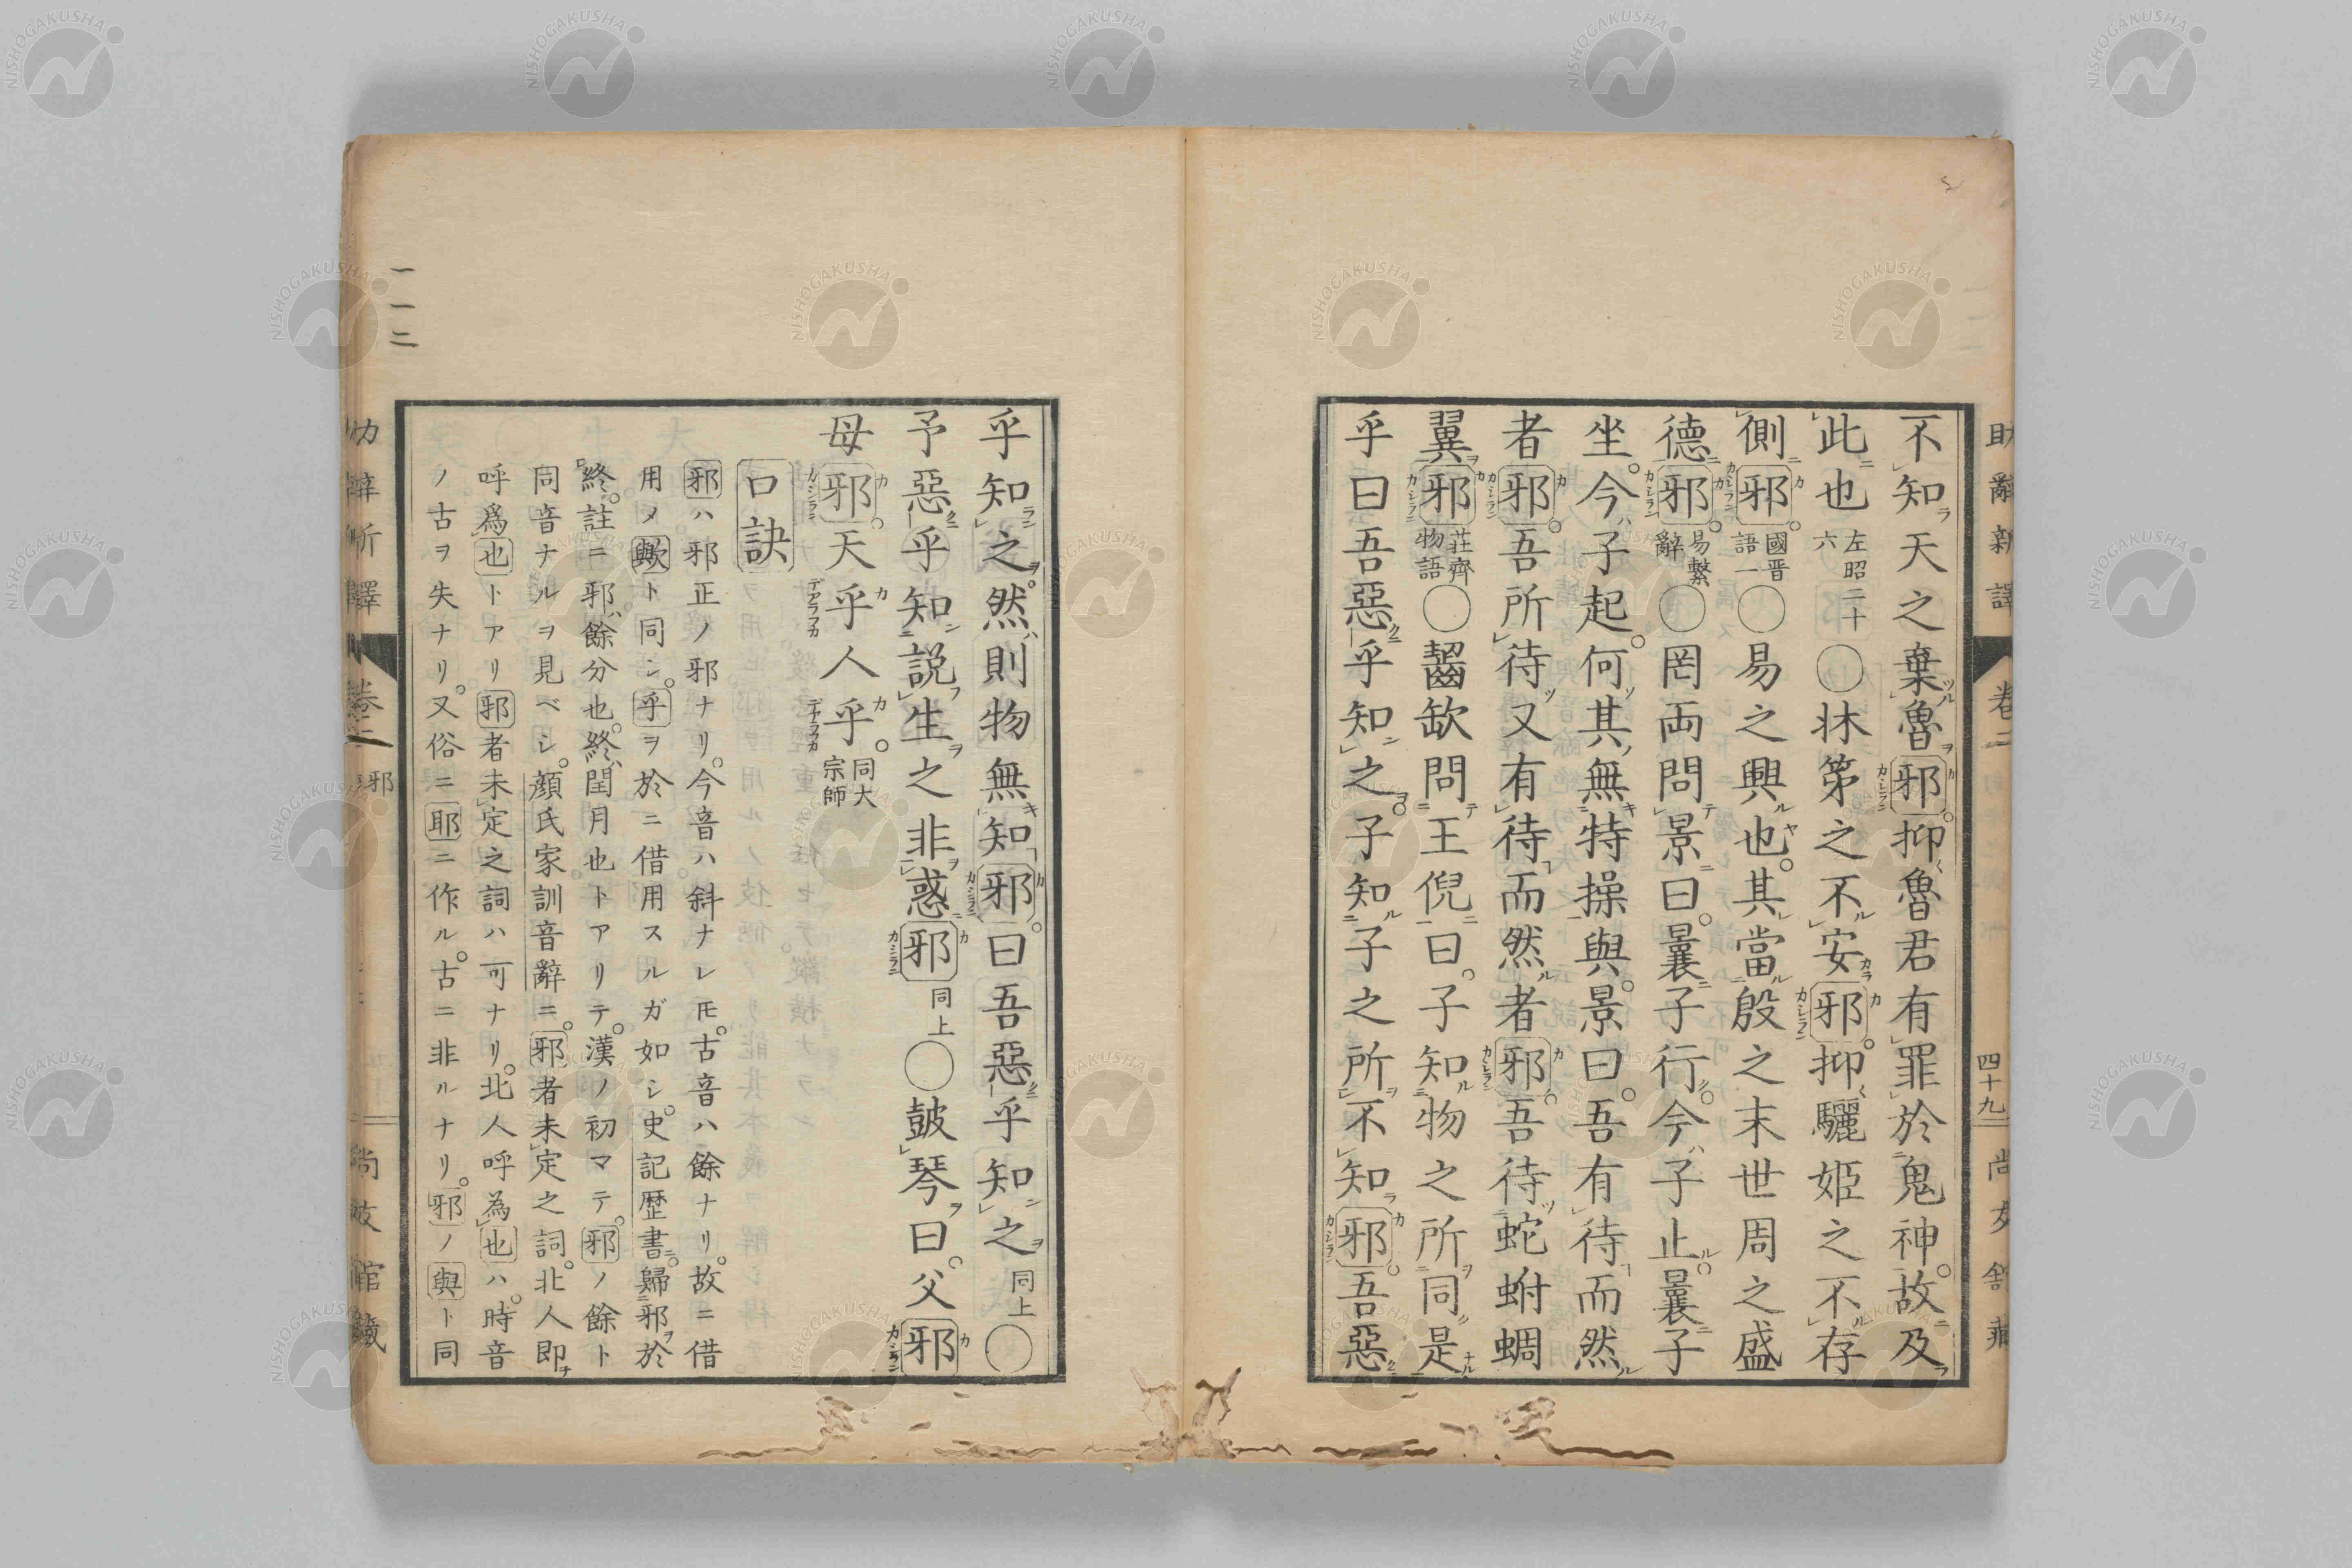 不知天之棄魯邪。抑魯君有罪於鬼神。故及
此也左昭二十六〇牀第之不安邪。抑驪姫之不存
側邪。國晋語一〇易之興也。其當殷之末世周之盛
德邪。易繫辭〇罔兩問景曰。曩子行今子止。曩子
坐。今子起。何其無特操與。景曰。吾有待而然
者邪。吾所待又有待而然者邪。吾待蛇蚹蜩
翼邪荘齊物語〇齧缺問王倪曰。子知物之所同是
乎曰吾惡乎知之。子知子之所不知邪。吾惡
乎知之。然則物無知邪。曰吾惡乎知之同上〇
予惡乎知説生之非惑邪同上〇鼓琴曰。父邪
母邪。天乎人乎。同大宗師
口訣
邪ハ邪正ノ邪ナリ。今音ハ斜ナレ𪜈。古音ハ餘ナリ。故ニ借
用メ歟ト同シ。乎ヲ於ニ借用スルガ如シ。史記歴書。歸邪於
終。註ニ邪餘分也。終閏月也トアリテ。漢ノ初マテ。邪ノ餘ト
同音ナルヲ見ベシ。顔氏家訓音辭ニ。邪者未定之詞。北人即
呼爲也トアリ邪者未定之詞ハ可ナリ。北人呼為也ハ。時音
ノ古ヲ失ナリ。又俗ニ耶ニ作ル。古ニ非ルナリ。邪ノ與ト同
助辭新譯
卷二
四十九
尚友舘藏
卷二
邪
一一二